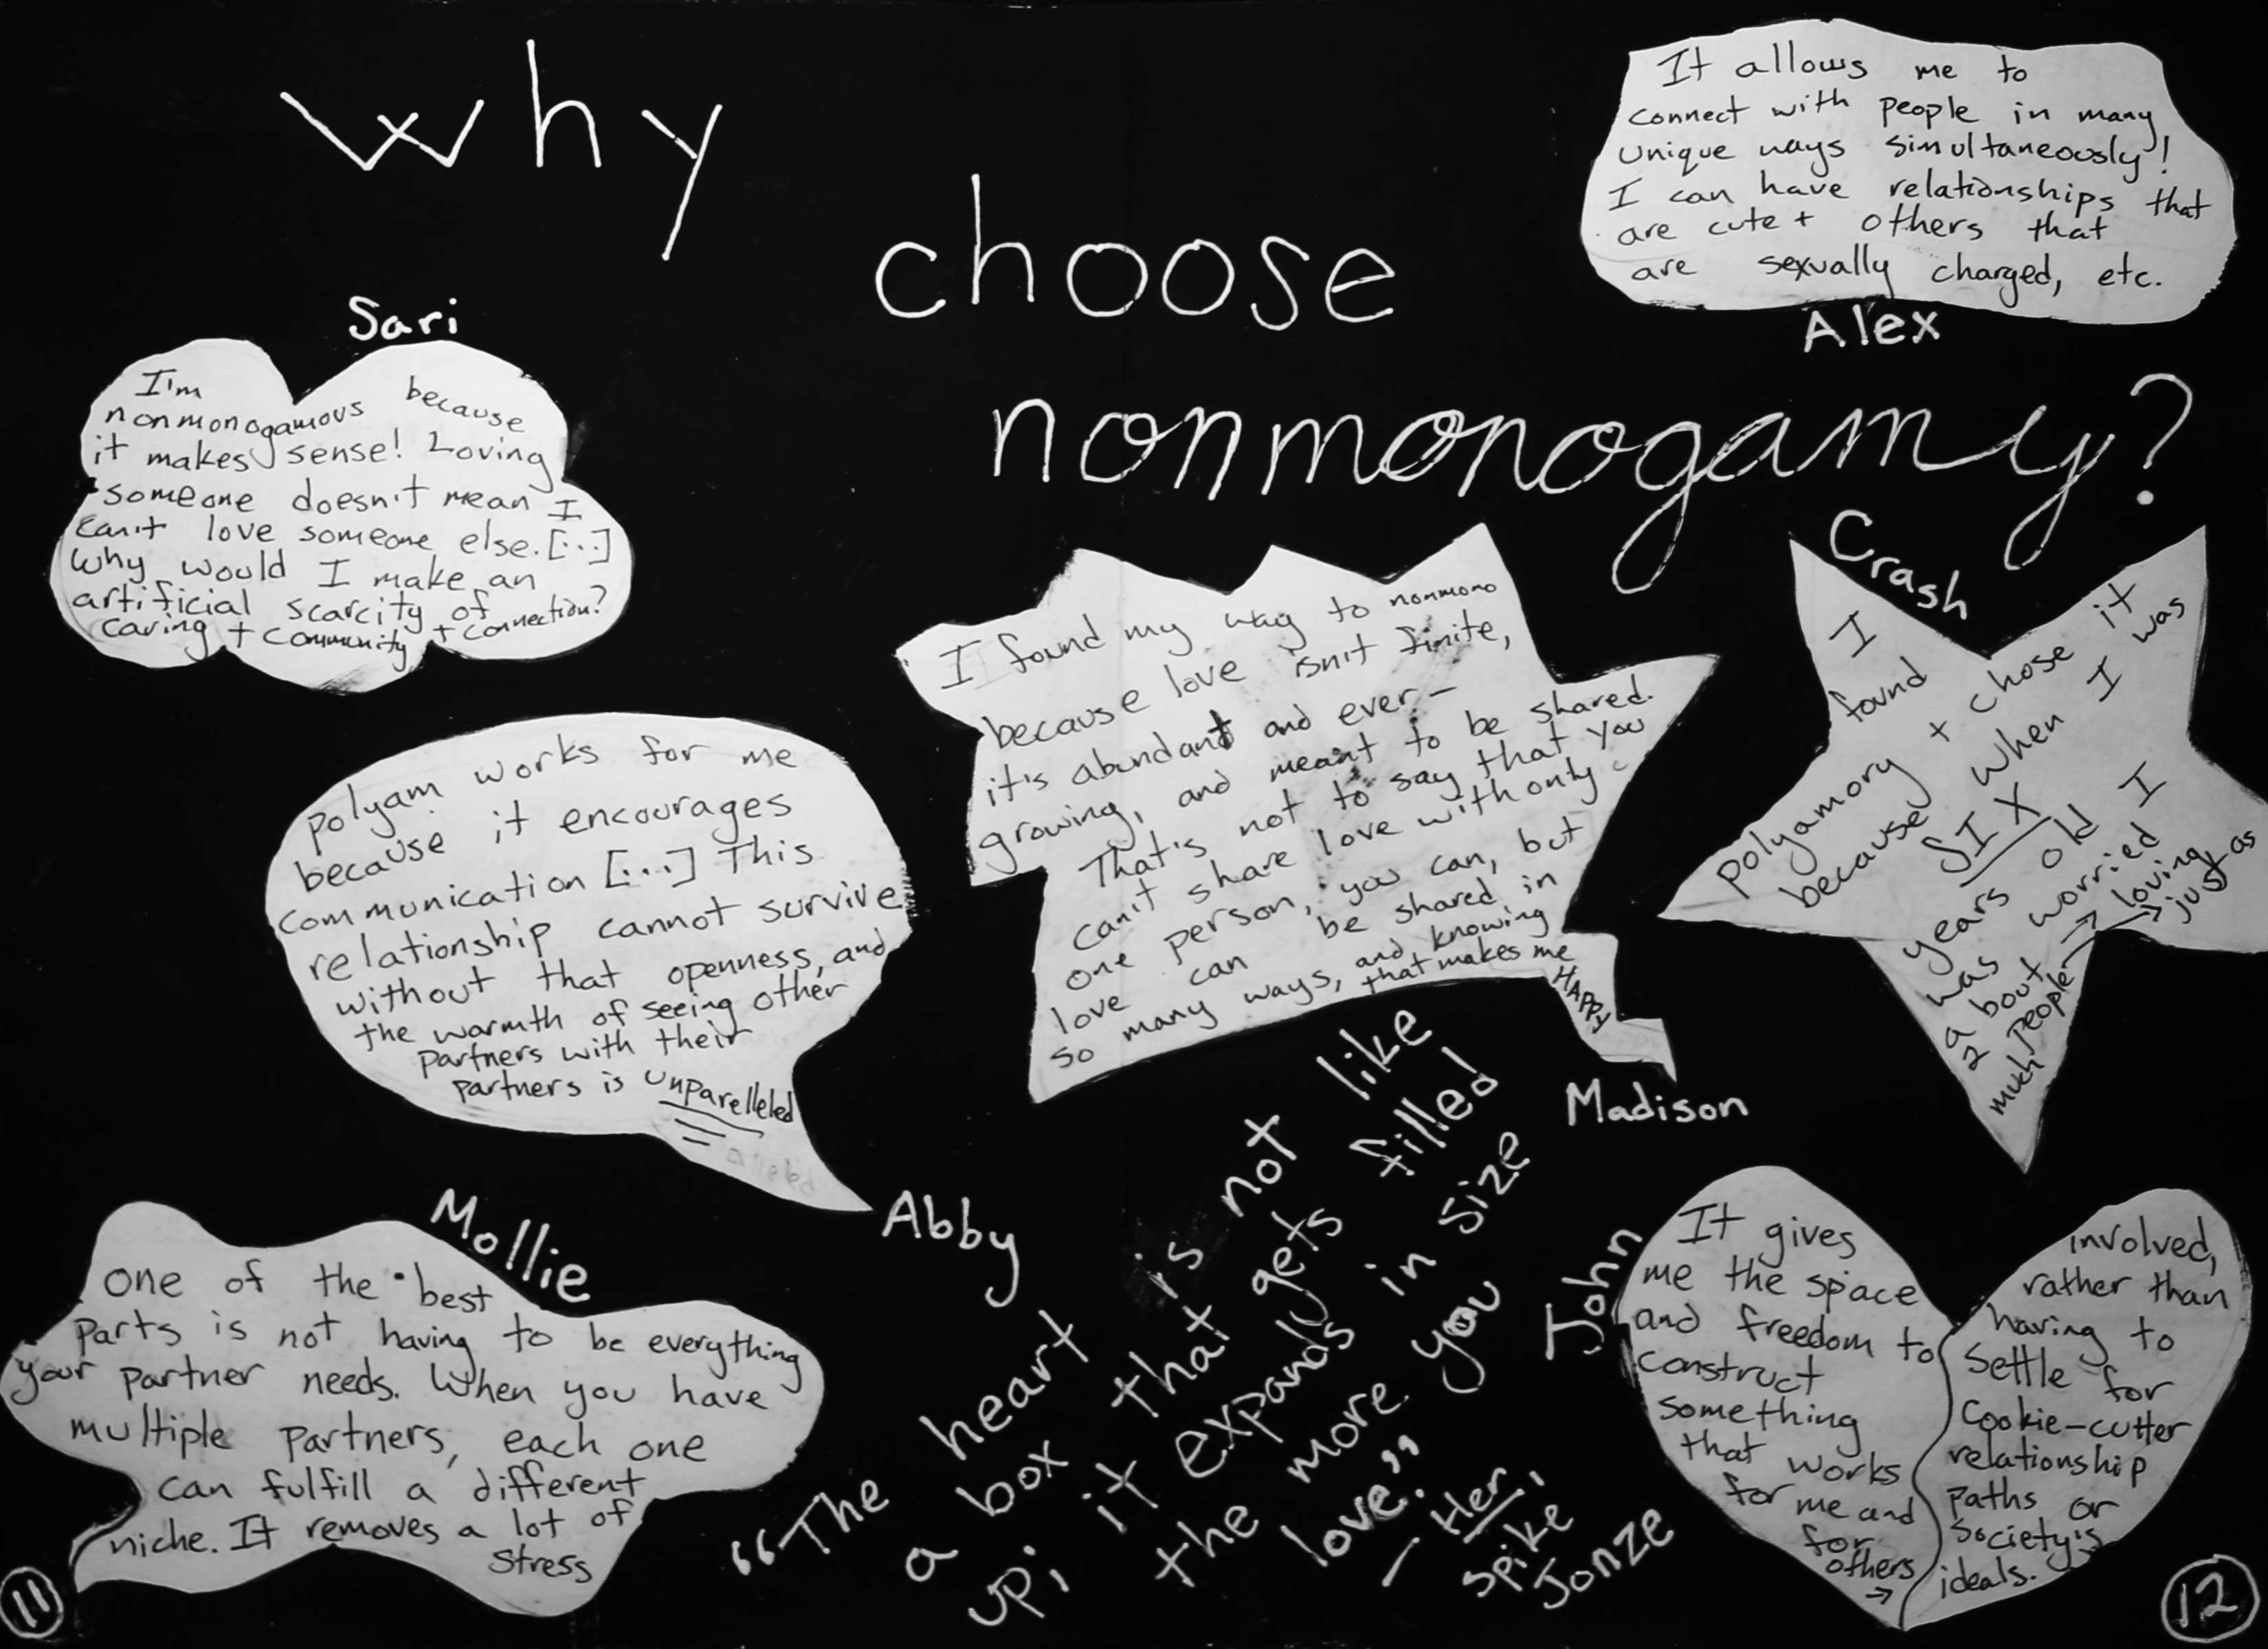 why
choose
nonmonogamy?
It allows me to
connect with people in many
unique ways simultaneously!
I can have relationships that
are cute + others that
are sexually charged, etc.
Alex
Sari
I'm
nonmonogamous because
it makes sense! Loving
someone doesn't mean I
can't love someone else. [...]
Why would I make an
artificial scarcity of
caring + community + connection?
polyam works for me
because it encourages
communication [...] This
relationship cannot survive
without that openness, and
the warmth of seeing other
partners with their
partners is unparelleled
Abby
I found my way to nonmono
because love isn't finite,
it's abundant and ever-
growing, and meant to be shared.
That's not to say that you
can't share love with only
one person, you can, but
love can be shared in
so many ways, and knowing
that makes me
HAPPY
Madison
Crash
I
found
polyamory + chose it
because when I was
SIX
years old I
was worried
about loving
2 people just as
much
Mollie
One of the best
parts is not having to be everything
your partner needs. When you have
multiple partners, each one
can fulfill a different
niche. It removes a lot of
stress
"The heart is not like
a box that gets filled
up; it expands in size
the more you
love."
- Her,
Spike
Jonze
John
It gives
me the space
and freedom to
construct
something
that works
for me and
for
others →
involved,
rather than
having to
settle for
cookie-cutter
relationship
paths or
society's
ideals.
11
12